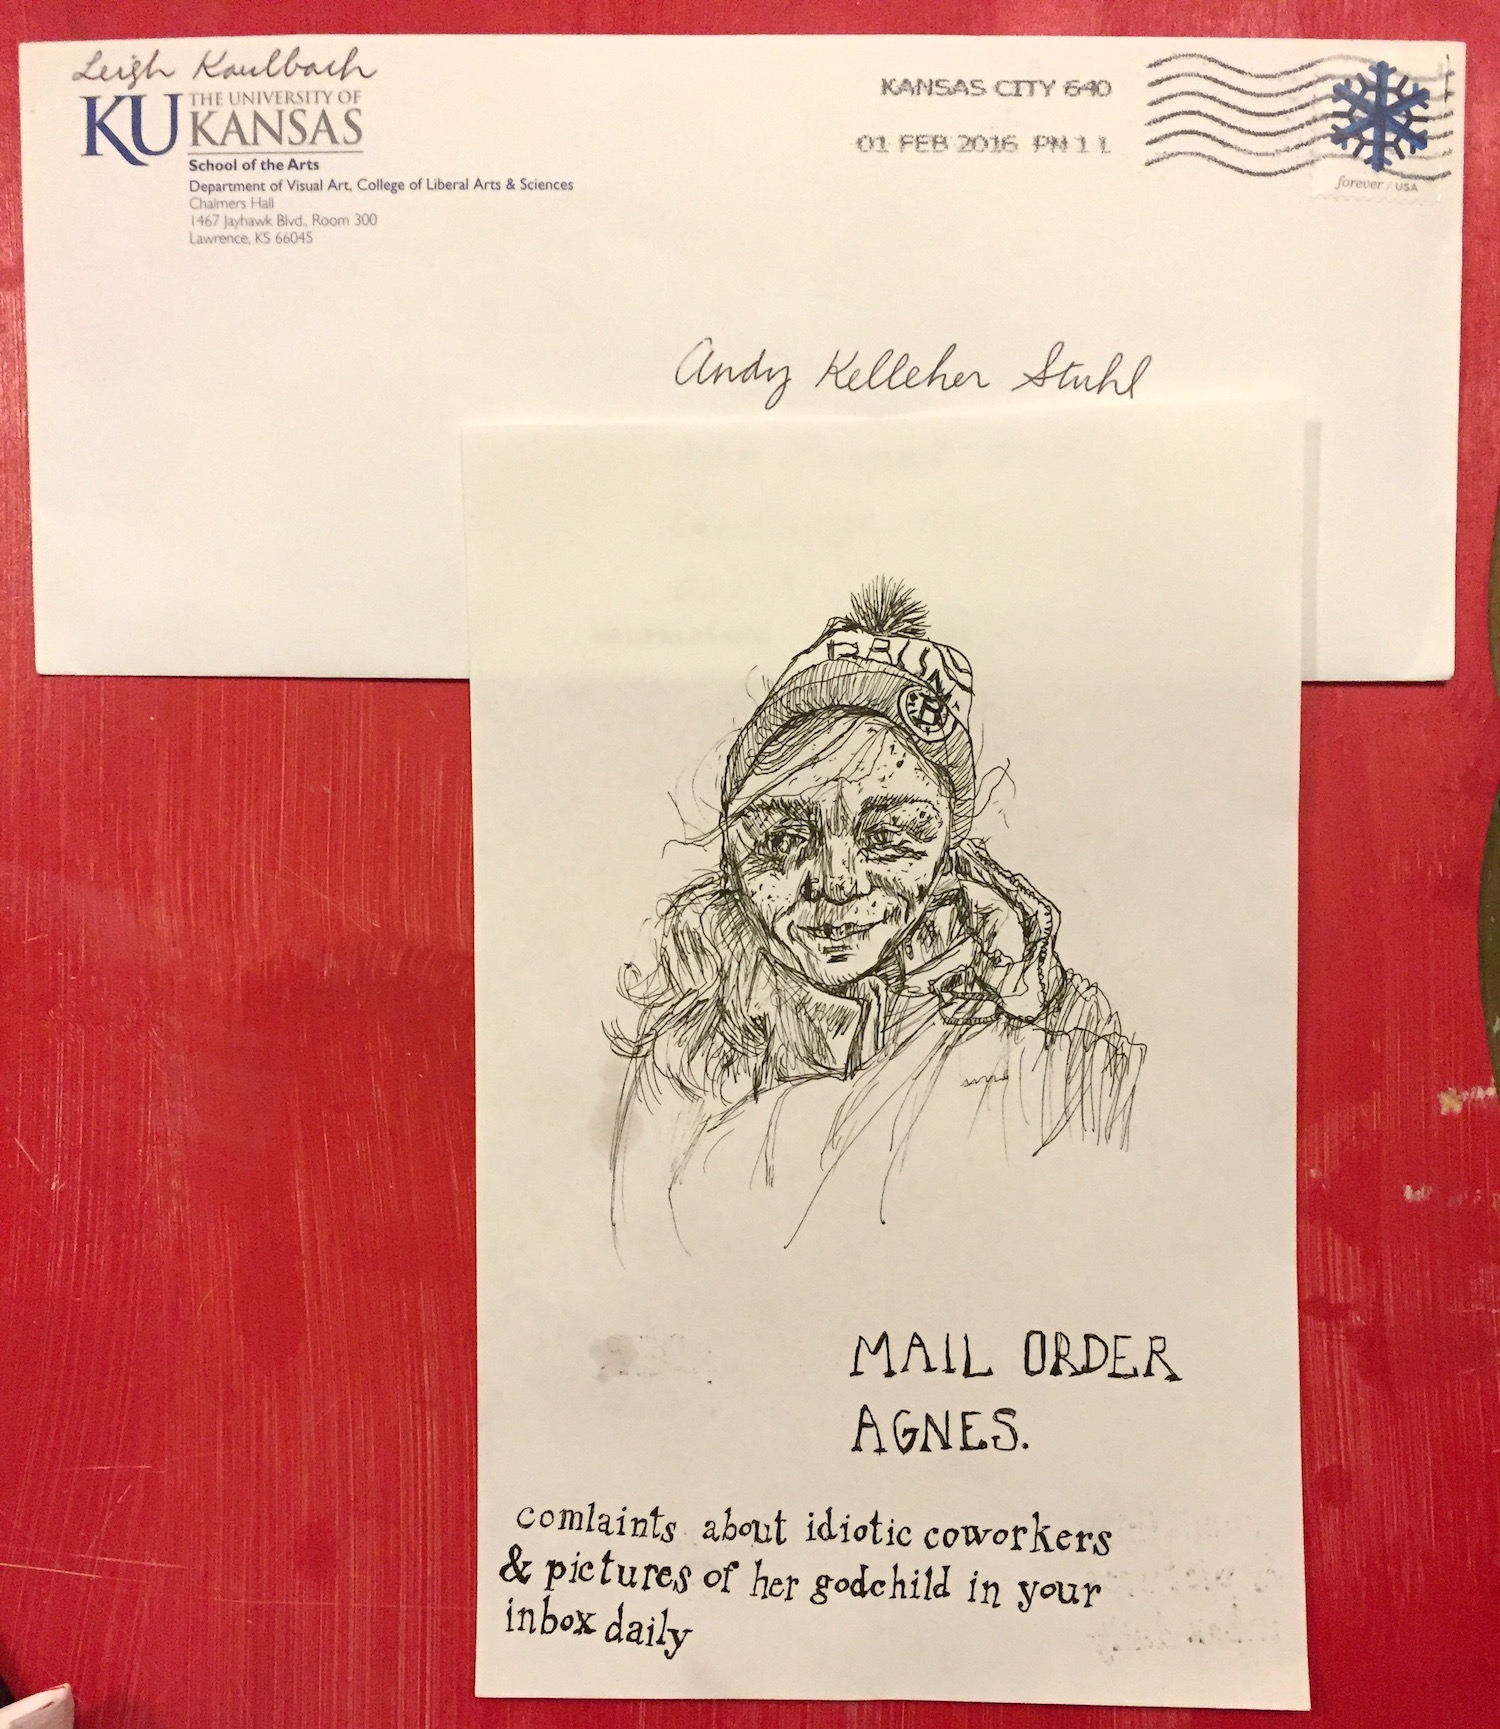 Leigh Kaulbach
KU THE UNIVERSITY OF
KANSAS
School of the Arts
Department of Visual Art, College of Liberal Arts & Sciences
Chalmers Hall
1467 Jayhawk Blvd., Room 300
Lawrence, KS 66045
KANSAS CITY 640
01 FEB 2016 PM 1 L
forever / USA
Andy Kelleher Stuhl
B
MAIL ORDER
AGNES.
comlaints about idiotic coworkers
& pictures of her godchild in your
inbox daily